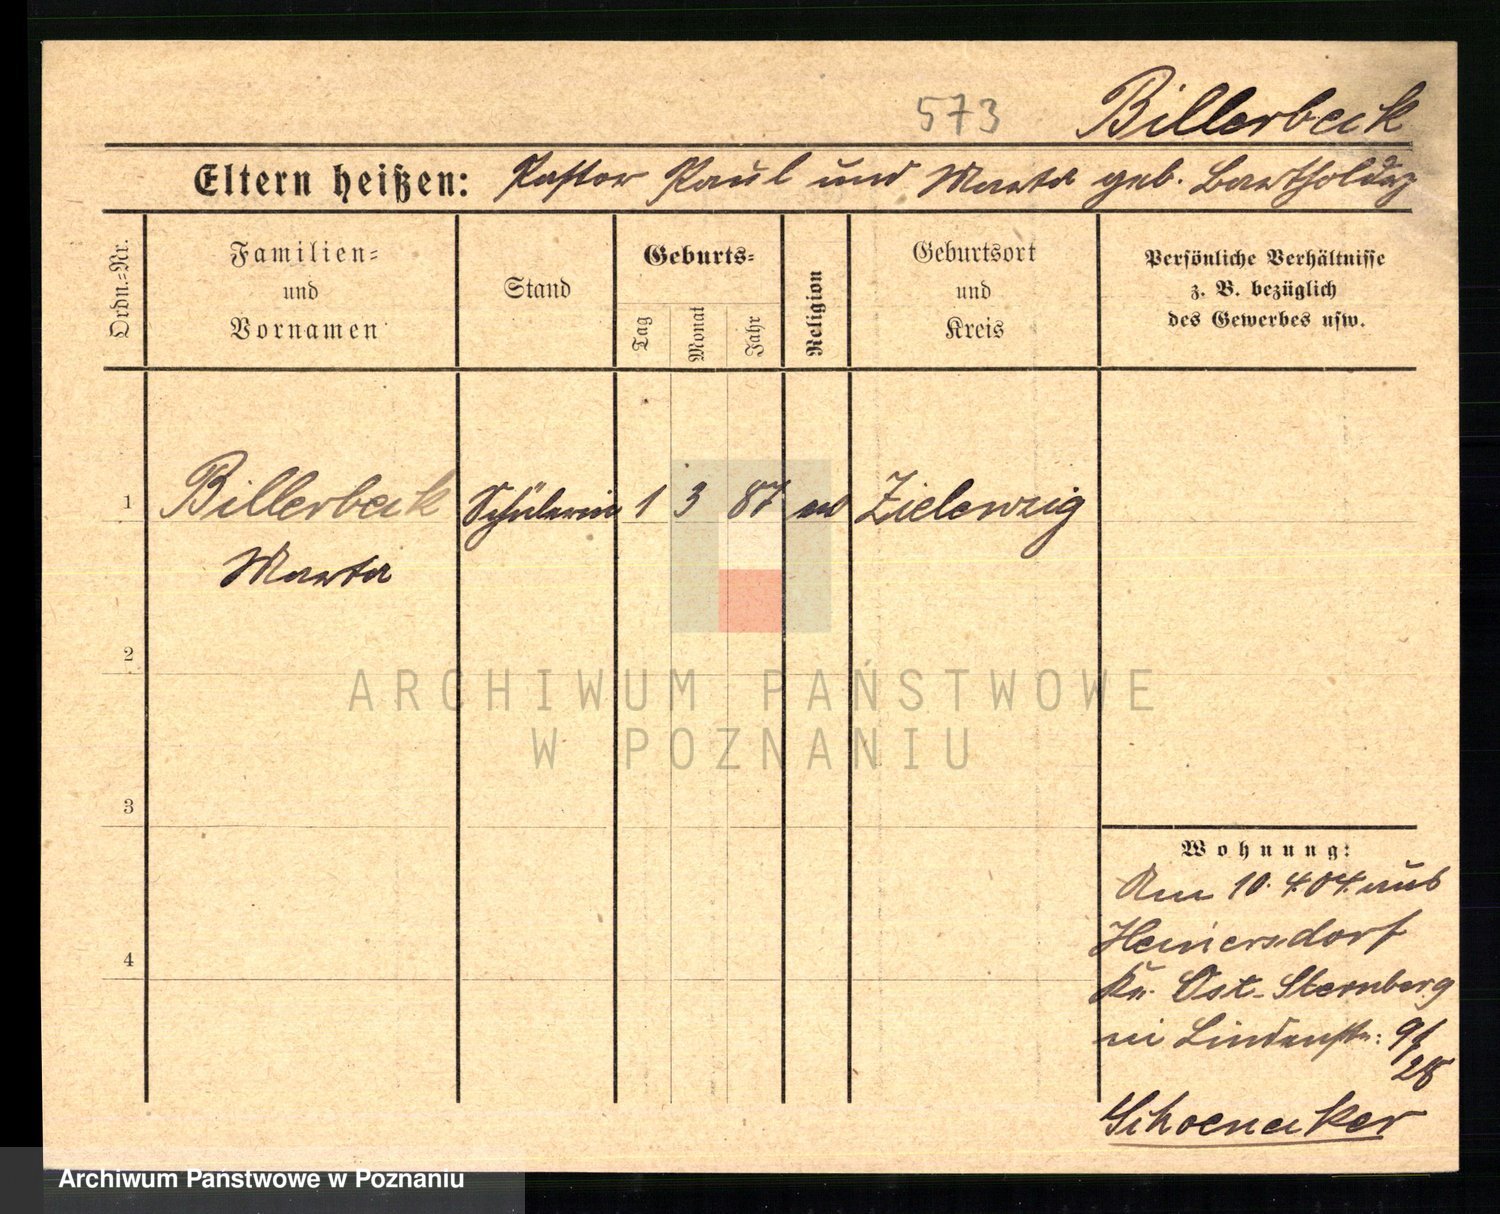 573 Billerbeck
Eltern heißen: Pastor Paul und Marta geb. Bartholdy
Ordn.-Nr.
Familien-
und
Vornamen
Stand
Geburts-
Tag
Monat
Jahr
Religion
Geburtsort
und
Kreis
Persönliche Verhältnisse
z. B. bezüglich
des Gewerbes usw.
1 Billerbeck Schülerin 1 3 87 ev Zielenzig
Marta
2
ARCHIWUM PAŃSTWOWE
W POZNANIU
3
4
Wohnung:
Am 10.4.04. aus
Heinersdorf
Kr. Ost-Sternberg
in Lindenstr: 9/
28
Schoenecker
Archiwum Państwowe w Poznaniu